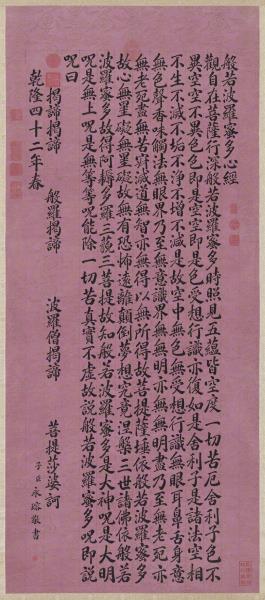 般若波羅蜜多心經
觀自在菩薩行深般若波羅蜜多時照見五蘊皆空度一切苦厄舍利子色不
異空空不異色色即是空空即是色受想行識亦復如是舍利子是諸法空相
不生不滅不垢不淨不增不減是故空中無色無受想行識無眼耳鼻舌身意
無色聲香味觸法無眼界乃至無意識界無無明亦無無明盡乃至無老死亦
無老死盡無苦集滅道無智亦無得以無所得故菩提薩埵依般若波羅蜜多
故心無罣礙無罣礙故無有恐怖遠離顛倒夢想究竟涅槃三世諸佛依般若
波羅蜜多故得阿耨多羅三藐三菩提故知般若波羅蜜多是大神呪是大明
呪是無上呪是無等等呪能除一切苦真實不虛故說般若波羅蜜多呪即說
呪曰
揭諦揭諦 般羅揭諦 波羅僧揭諦 菩提莎婆訶
乾隆四十二年春
子臣永瑢敬書